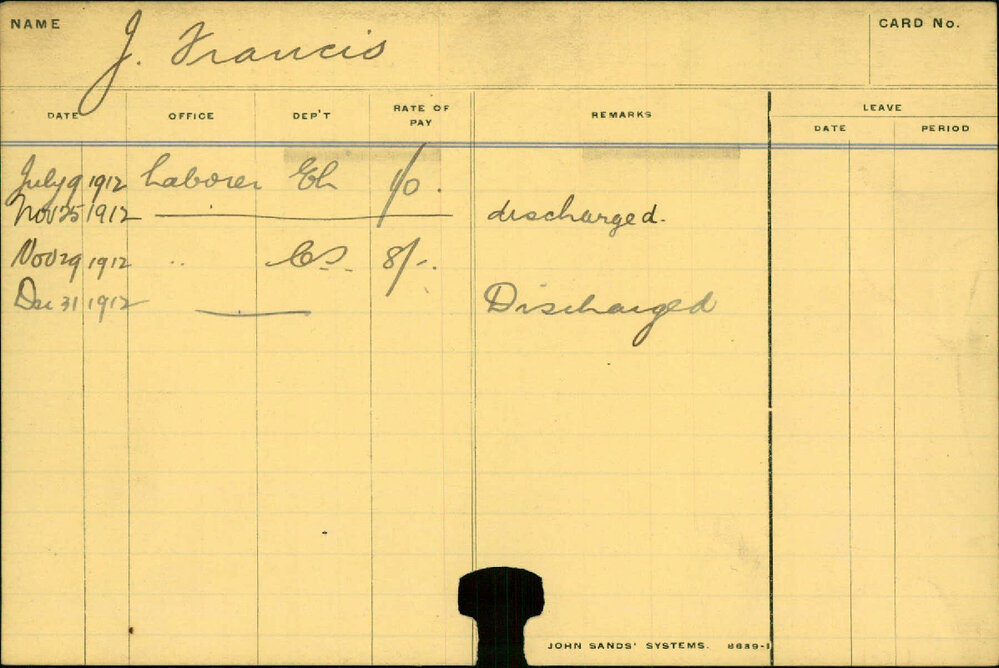 NAME J. Francis CARD No.
DATE OFFICE DEP'T RATE OF PAY REMARKS LEAVE
DATE PERIOD
July 9 1912 Laborer 10.
Nov 25 1912 discharged.
Nov 29 1912 " 8/-.
Dec 31 1912 Discharged
JOHN SANDS' SYSTEMS. 8639-1